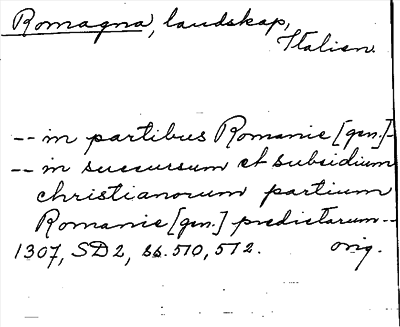 Romagna, landskap,
Italien.
-- in partibus Romanie [gen.]-
-- in succursum et subsidium
christianorum partium
Romanie [gen.] predictarum --
1307, SD 2, ss. 510, 512. orig.